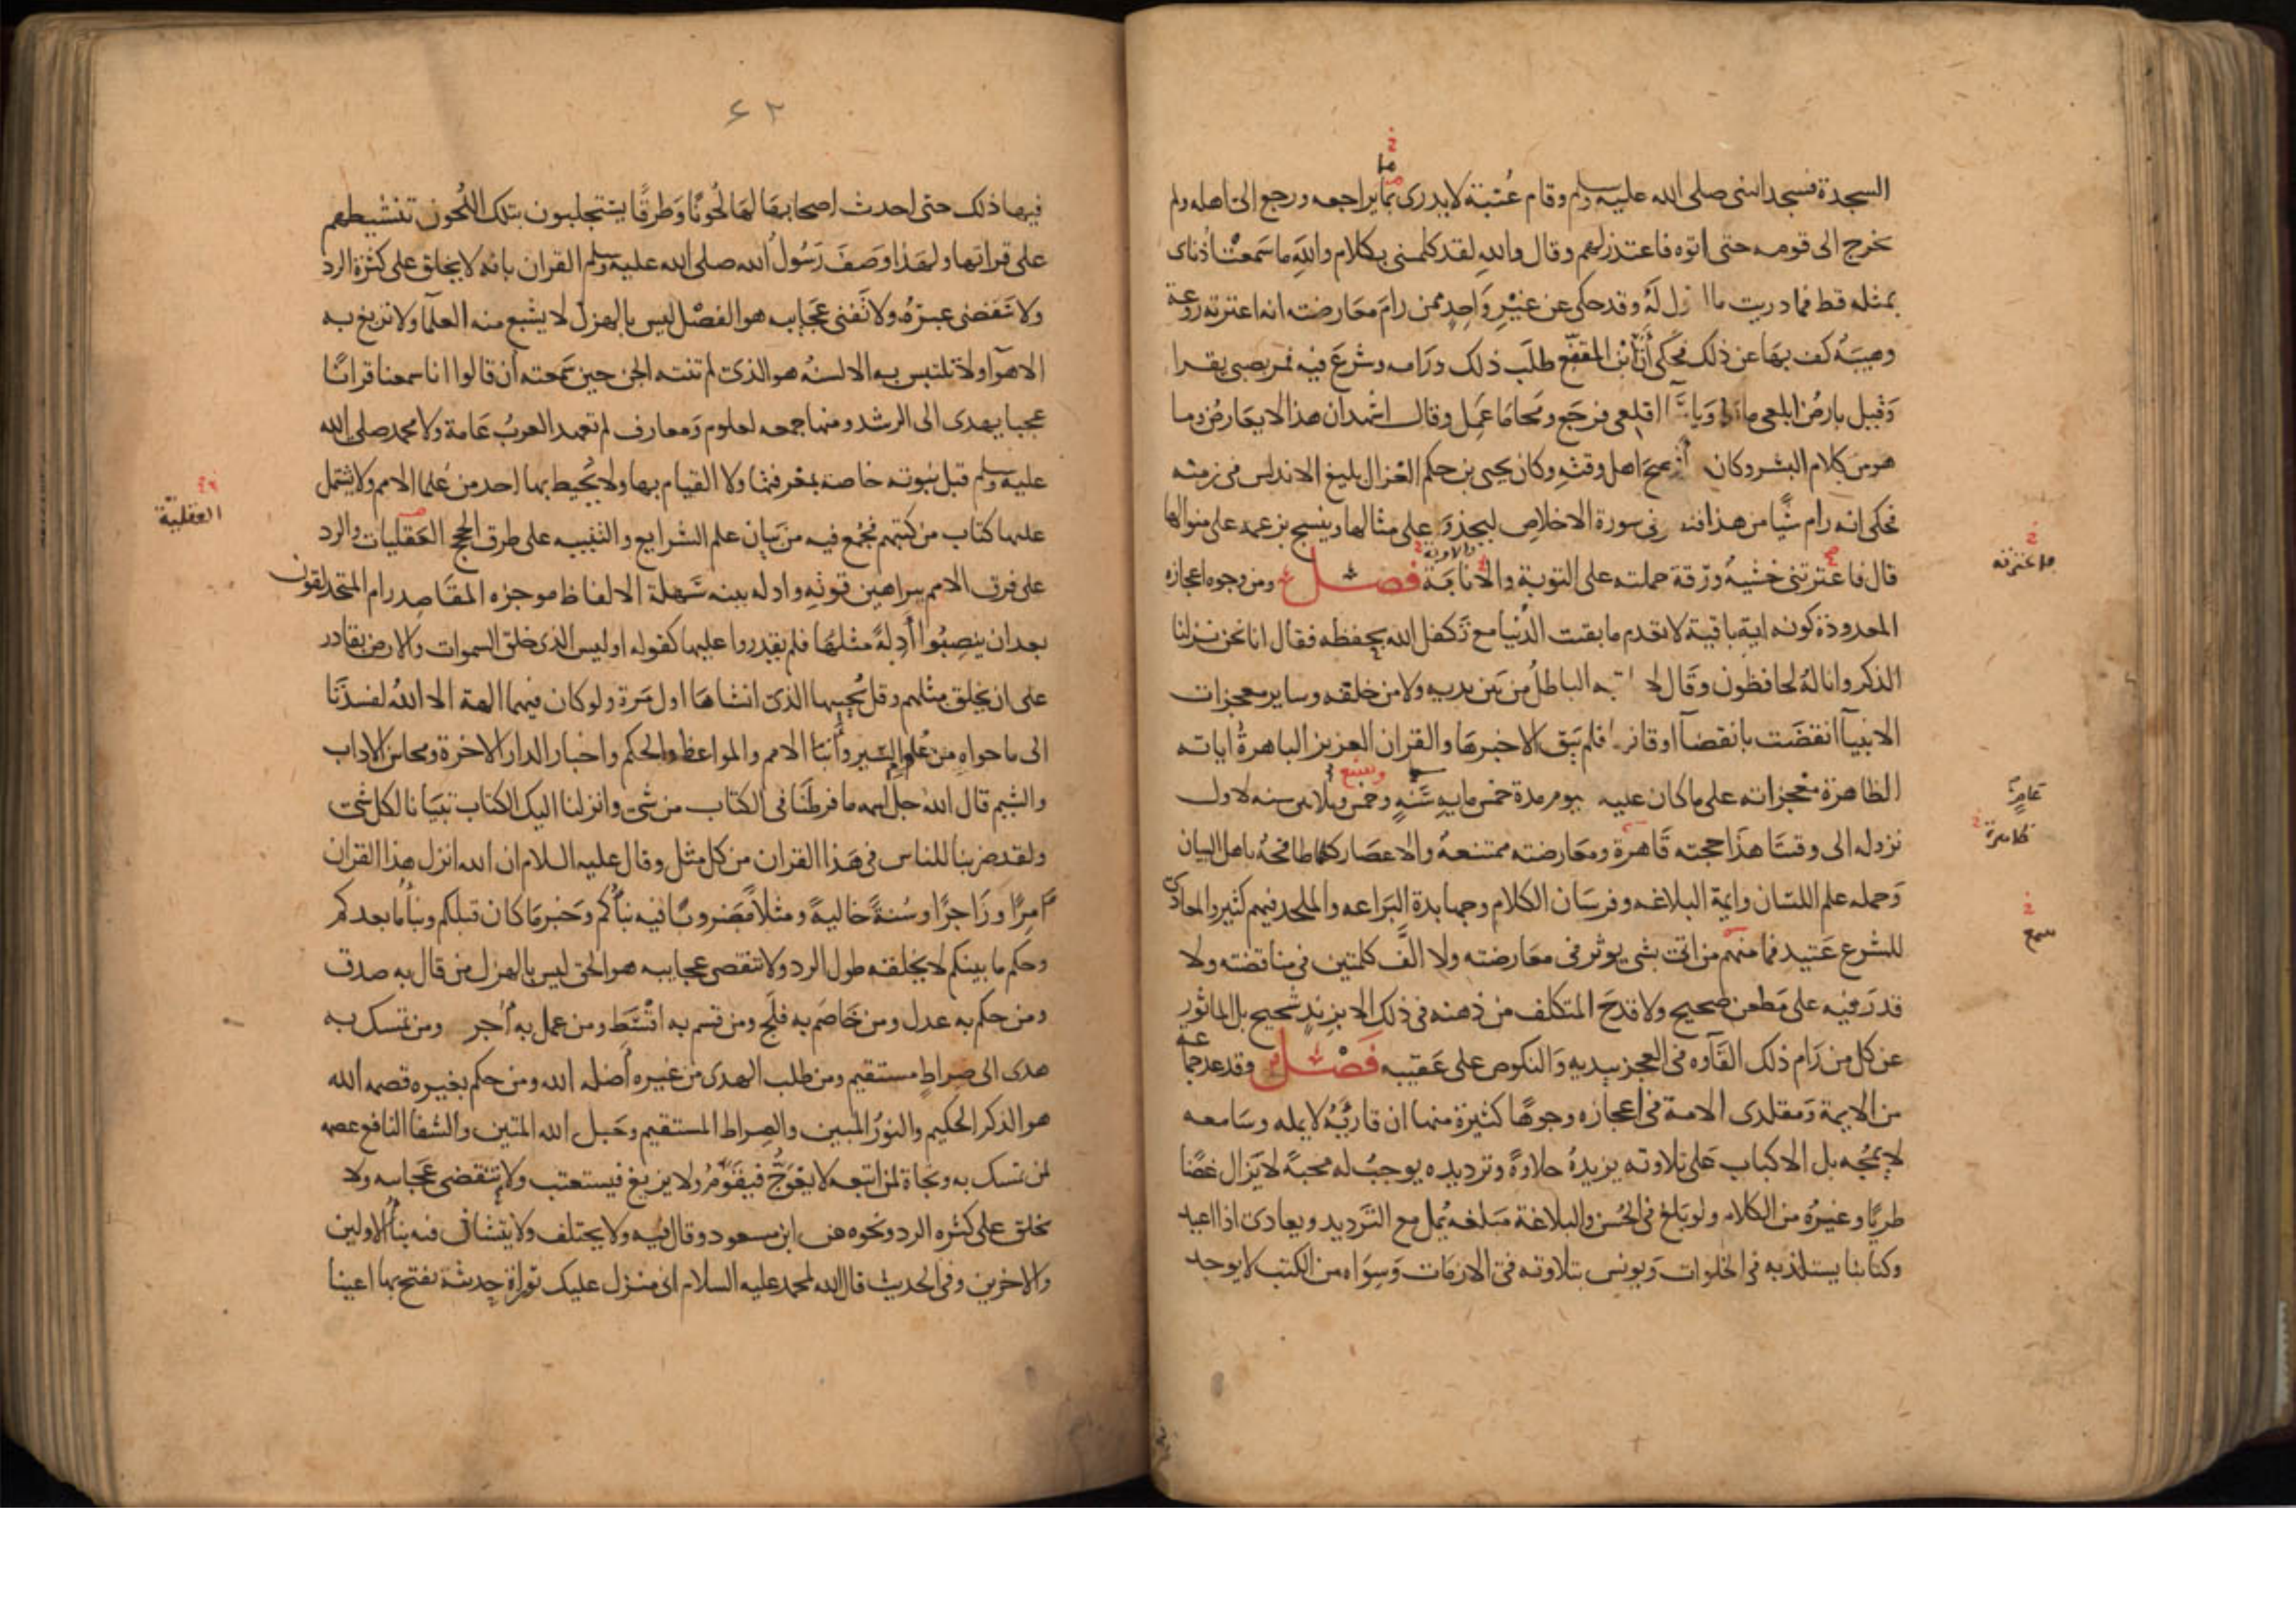 السجدة فسجد النبى صلى الله عليه وسلم وقام عتبة لا يدرى بما يراجعه ورجع الى اهله ولم
ما
يخرج الى قومه حتى اتوه فاعتذر لهم وقال والله لقد كلمنى بكلام والله ما سمعت اذناى
بمثله قط فما دريت ما اقول له وقد حكى عن غير واحد ممن رام معارضته انه اعترته روعة
وهيبة كف بها عن ذلك فحكى أن ابن المقفع طلب ذلك ورامه وشرع فيه فمر بصبى يقرا
وقيل يا رض ابلعى ماءك ويا سماء اقلعى فرجع ومحا ما عمل وقال اشهد ان هذا لا يعارض وما
هو من كلام البشر وكان أفصح اهل وقته وكان يحيى بن حكم الغزال بليغ الاندلس فى زمنه
فحكى انه رام شيا من هذا فنظر فى سورة الاخلاص ليحذو على مثالها وينسج بزعمه على منوالها
قال فاعترتنى خشية ورقة حملته على التوبة والانابة فصل ومن وجوه اعجازه
المعدودة كونه اية باقية لا تعدم ما بقيت الدنيا مع تكفل الله بحفظه فقال انا نحن نزلنا
الذكر وانا له لحافظون وقال لا ياتيه الباطل من بين يديه ولا من خلفه وساير معجزات
الانبيآ انقضت بانقضآ اوقاتها فلم يبق الا خبرها والقران العزيز الباهرة اياته
الظاهرة معجزاته على ما كان عليه اليوم مدة خمس مايه سنة وخمس وثلاثين سنه لاول
وسبع
نزوله الى وقتنا هذا حجته قاهرة ومعارضته ممتنعة والاعصار كلها طافحة باهل البيان
وحمله علم اللسان وايمة البلاغه وفرسان الكلام وجهابدة البراعه والملحد فيهم كثير والمعادى
للشرع عتيد فما منهم من اتى بشى يوثر فى معارضته ولا الف كلمتين فى مناقضته ولا
قدر فيه على مطعن صحيح ولا قدح المتكلف من ذهنه فى ذلك الا بزند شحيح بل الماثور
عن كل من رام ذلك القآوه فى العجز بيديه والنكوص على عقبيه فصل وقد عد جماعة
من الايمة ومقلدى الامة فى اعجازه وجوها كثيرة منها ان قاريه لا يمله وسامعه
لا يمجه بل الاكباب على تلاوته يزيده حلاوة وترديده يوجب له محبة لا يزال غضا
طريا وغيره من الكلام ولو بلغ فى الحسن والبلاغة مبلغه يمل مع الترديد ويعادى اذا اعيد
وكتابنا يستلذ به فى الخلوات ويونس بتلاوته فى الازمات وسواه من الكتب لا يوجد
سمع
٦٢
فيها ذلك حتى احدث اصحابها لها لحونا وطرقا يستجلبون بتلك اللحون تنشيطهم
على قراتها ولهذا وصف رسول الله صلى الله عليه وسلم القران بانه لا يخلق على كثرة الرد
ولا تنقضى عبره ولا تفنى عجايبه هو الفصل ليس بالهزل لا يشبع منه العلمآ ولا تزيغ به
الاهوآ ولا تلتبس به الالسنة هو الذى لم تنته الجن حين سمعته ان قالوا انا سمعنا قرانا
عجبا يهدى الى الرشد ومنها جمعه لعلوم ومعارف لم تعهد العرب عامة ولا محمد صلى الله
عليه وسلم قبل نبوته خاصة بمعرفتها ولا القيام بها ولا يحيط بها احد من علما الامم ولا يشتمل
عليها كتاب من كتبهم فجمع فيه من بيان علم الشرايع والتنبيه على طرق الحجج العقليات والرد
العقلية
على فرق الامم ببراهين قوية وادله بينه سهلة الالفاظ موجزه المقاصد رام المتحدلقون
بعد ان ينصبوا أدلة مثلها فلم يقدروا عليها كقوله اوليس الذى خلق السموات والارض بقادر
على ان يخلق مثلهم وقل يحييها الذى انشاها اول مرة ولو كان فيهما الهة الا الله لفسدتا
الى ما حواه من علوم السير وأنبا الامم والمواعظ والحكم واخبار الدار الاخرة ومحاسن الاداب
والشيم قال الله جل اسمه ما فرطنا فى الكتاب من شى وانزلنا اليك الكتاب تبيانا لكل شى
ولقد ضربنا للناس فى هذا القران من كل مثل وقال عليه السلام ان الله انزل هذا القران
آمرا وزاجرا وسنة خالية ومثلا مضروبا فيه نبأكم وخبر ما كان قبلكم ونبأ ما بعدكم
وحكم ما بينكم لا يخلقه طول الرد ولا تنقضى عجايبه هو الحق ليس بالهزل من قال به صدق
ومن حكم به عدل ومن خاصم به فلج ومن قسم به اقسط ومن عمل به أجر ومن تمسك به
هدى الى صراط مستقيم ومن طلب الهدى من غيره أضله الله ومن حكم بغيره قصمه الله
هو الذكر الحكيم والنور المبين والصراط المستقيم وحبل الله المتين والشفا النافع عصمه
لمن تمسك به ونجاة لمن اتبعه لا يعوج فيقوم ولا يزيغ فيستعتب ولا تنقضى عجايبه ولا
يخلق على كثره الرد ونحوه عن ابن مسعود وقال فيه ولا يختلف ولا يتشان فيه نبأ الاولين
والاخرين وفى الحديث قال الله لمحمد عليه السلام انى منزل عليك توراة حديثة تفتح بها اعينا